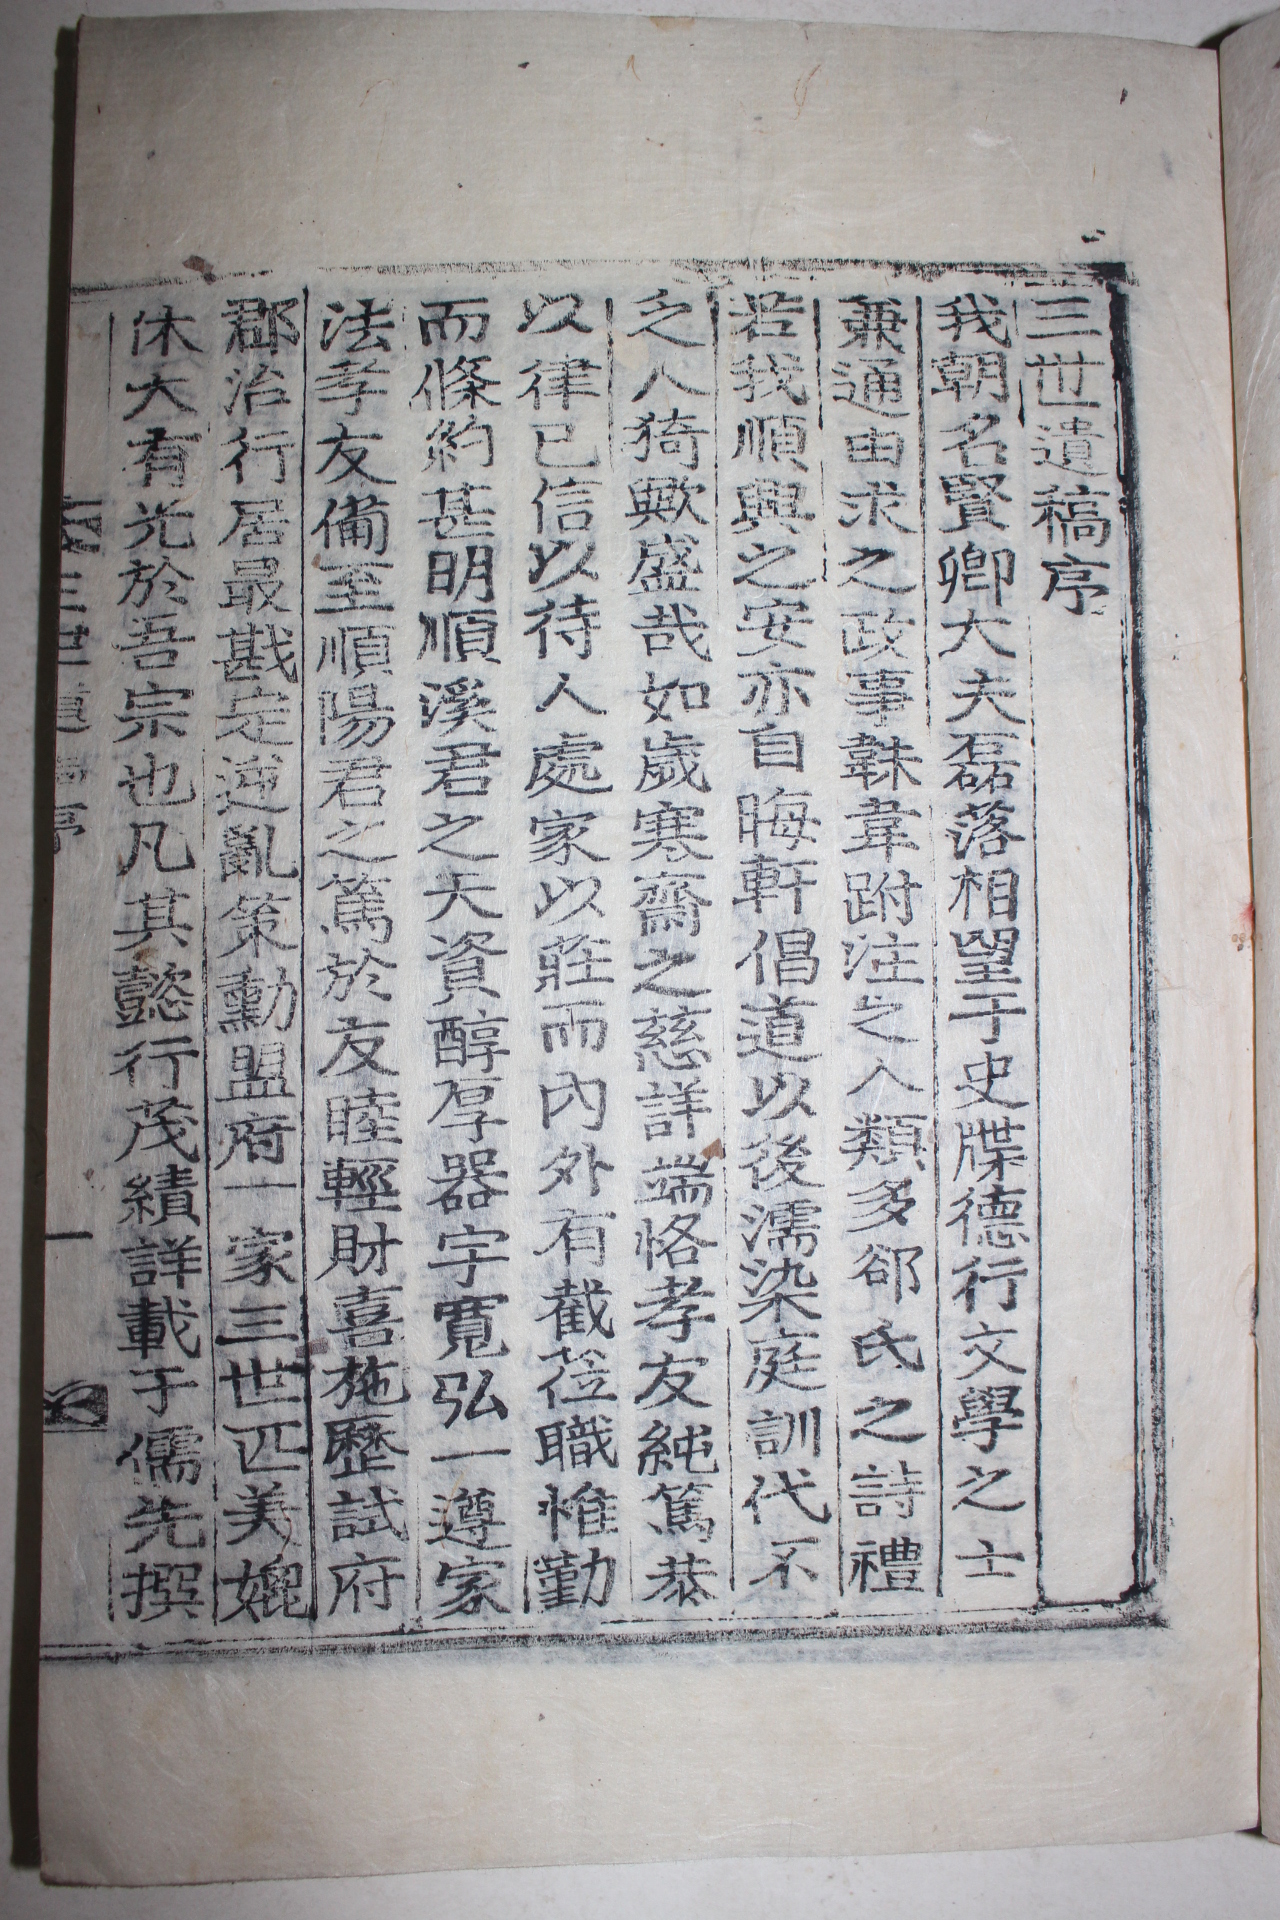 三世遺稿序
我朝名賢卿大夫磊落相望于史牒德行文學之士
兼通由求之政事韎韋跗注之人類多郤氏之詩禮
若我順興之安亦自晦軒倡道以後濡染庭訓代不
乏人猗歟盛哉如歲寒齋之慈詳端恪孝友純篤恭
以律已信以待人處家以莊而內外有截莅職惟勤
而條約甚明順溪君之天資醇厚器宇寬弘一遵家
法孝友備至順陽君之篤於友睦輕財喜施歷試府
郡治行居最戡定逆亂策勳盟府一家三世匹美媲
休大有光於吾宗也凡其懿行茂績詳載于儒先撰
三世遺稿序
一